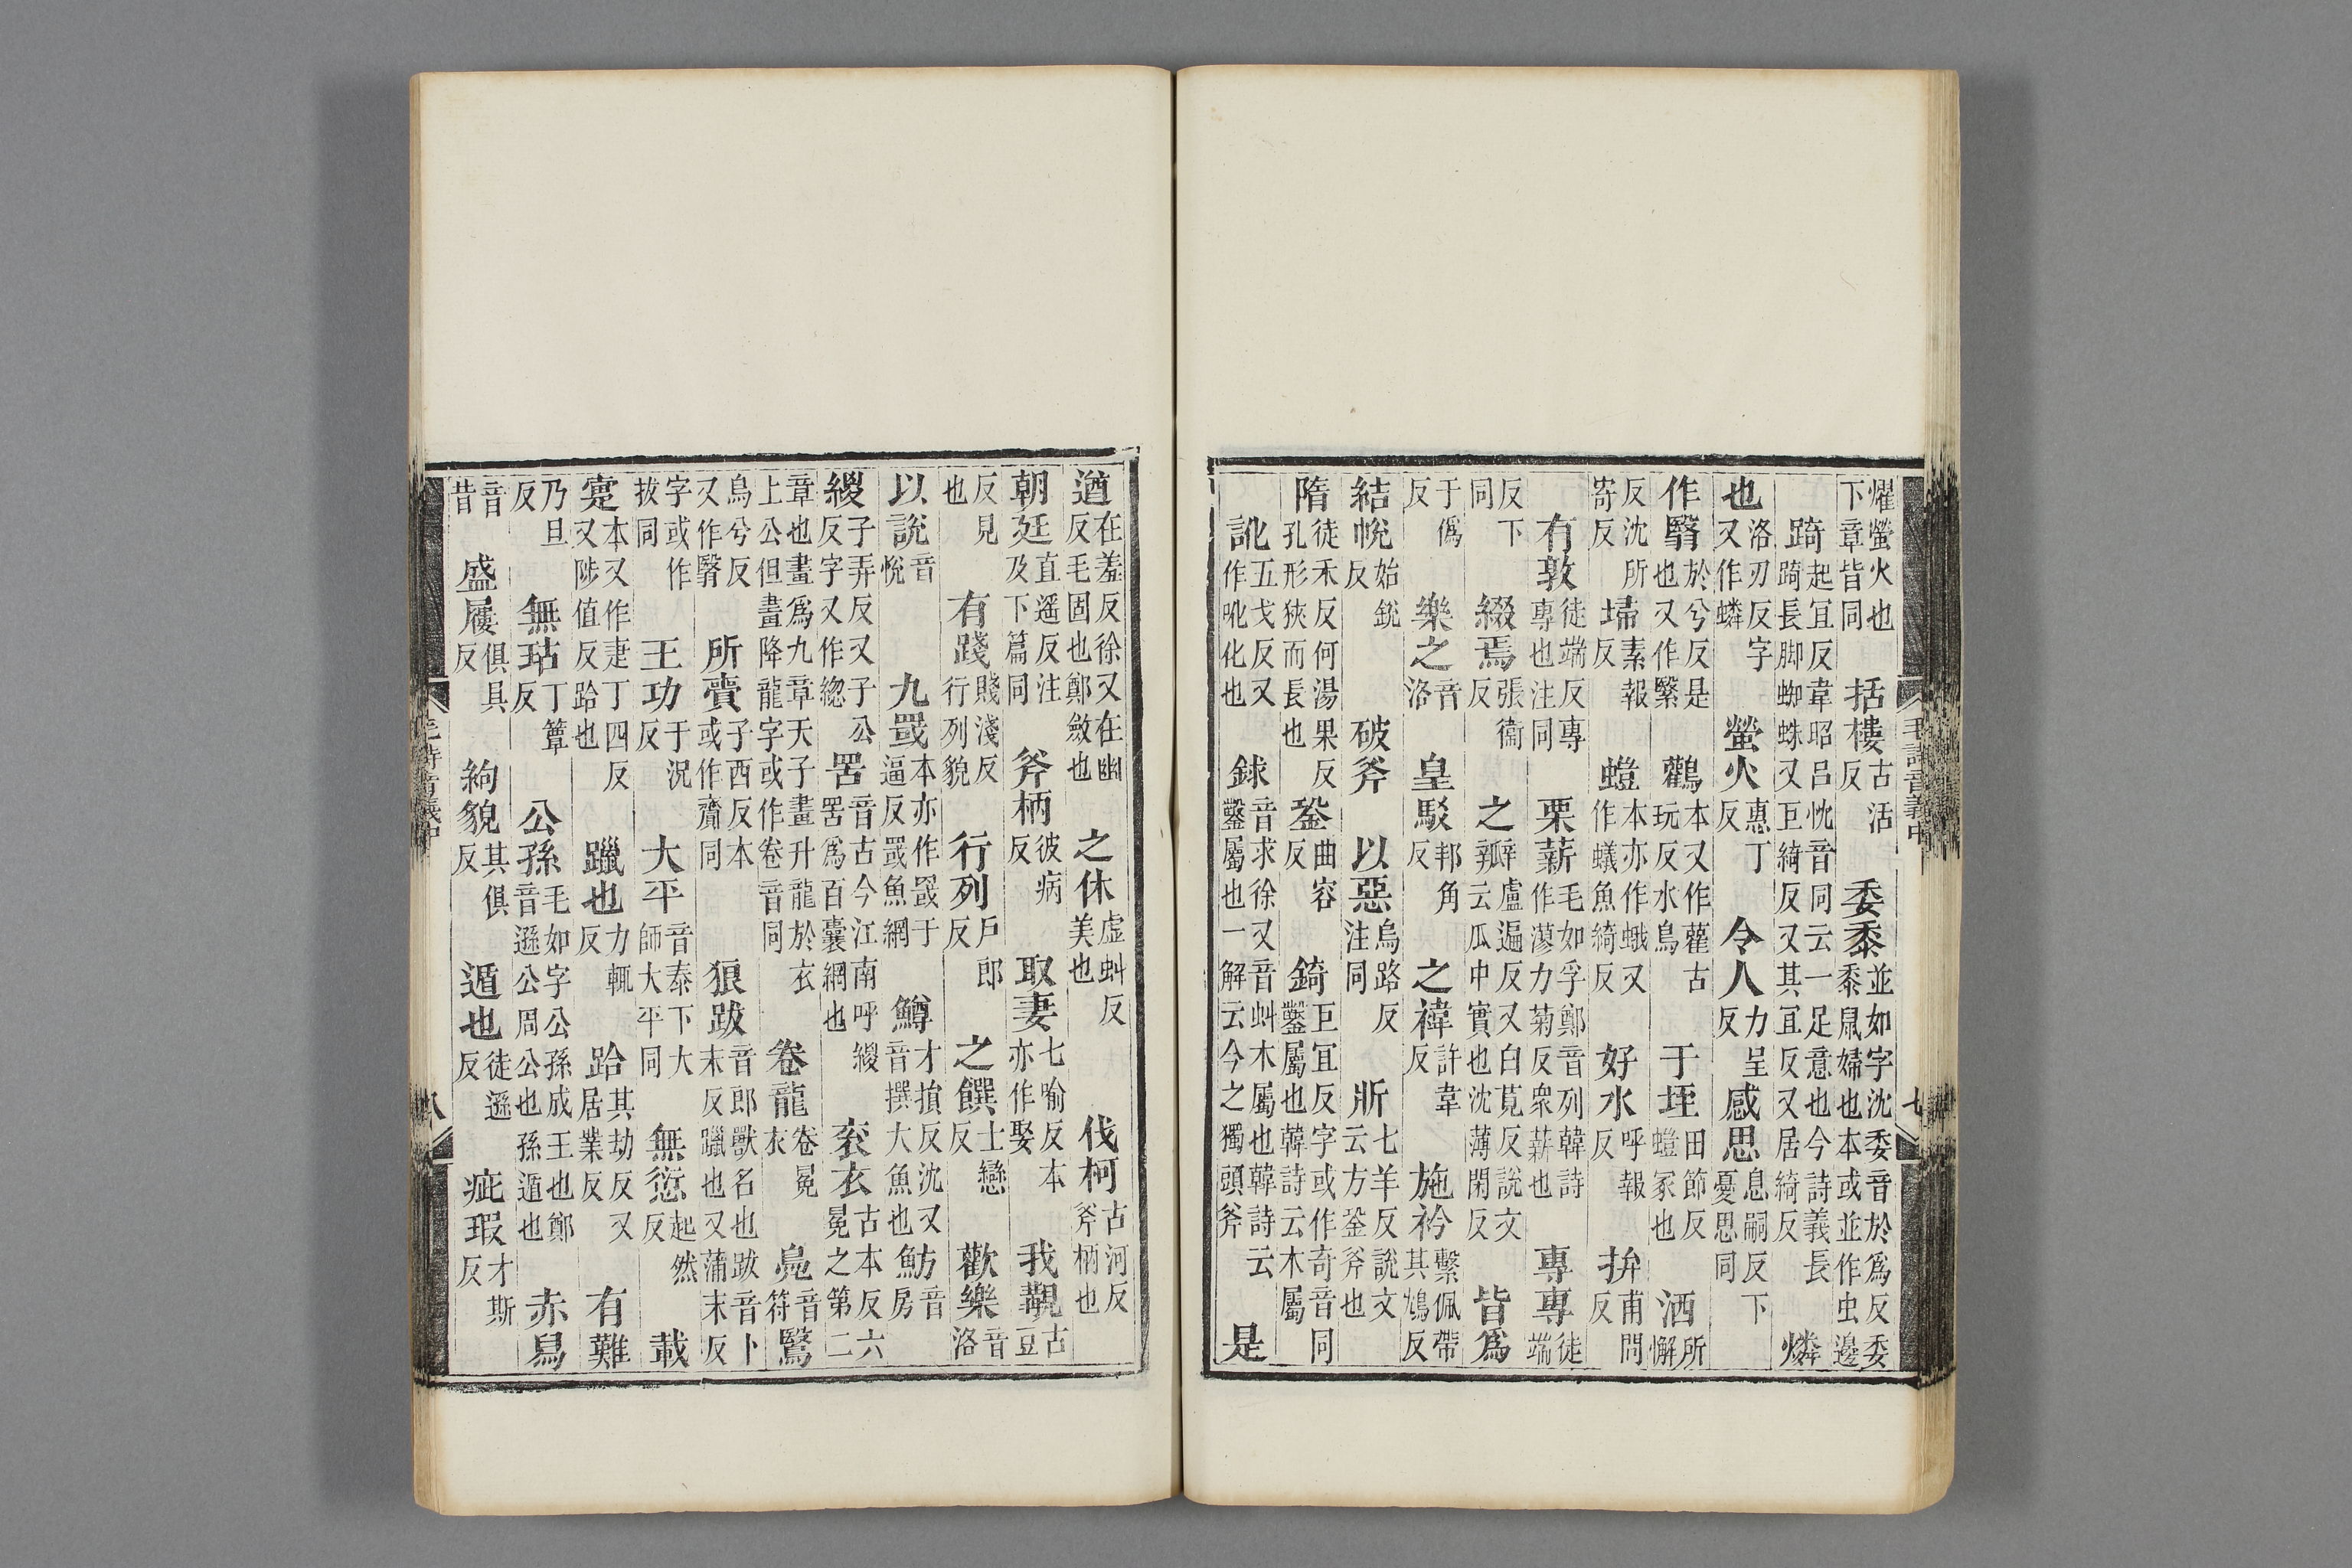 燿螢火也下章皆同 括樓古活反 委黍並如字沈委音於爲反委黍鼠婦也本或並作虫邊
踦起宜反韋昭呂忱音同云一足意也今詩義長踦長脚蜘蛛又巨綺反又其宜反又居綺反 燐
也洛刃反字又作蟒 螢火惠丁反 令人力呈反 感思息嗣反下憂思同
作鷖於兮反是也又作繄 鸛本又作雚古玩反水鳥 于垤田節反螘冢也 洒所懈
反沈所寄反 埽素報反 螘本亦作蛾又作蟻魚綺反 好水呼報反 拚甫問反
有敦徒端反專專也注同 栗薪毛如字鄭音列韓詩作蓼力菊反衆薪也 專專徒端
反下同 綴焉張衞反 之瓣盧遍反又白莧反說文云瓜中實也沈薄閑反 皆爲
于僞反 樂之音洛 皇駁邦角反 之褘許韋反 施衿繫佩帶其鳩反
結帨始銳反 破斧 以惡烏路反注同 斨七羊反說文云方銎斧也
隋徒禾反何湯果反孔形狹而長也 銎曲容反 錡巨宜反字或作奇音同鑿屬也韓詩云木屬
訛五戈反又作吪化也 銶音求徐又音虯木屬也韓詩云鑿屬也一解云今之獨頭斧 是
毛詩音義中 七
遒在羞反徐又在幽反毛固也鄭斂也 之休虛虯反美也 伐柯古河反斧柄也
朝廷直遥反注及下篇同 斧柄彼病反 取妻七喻反本亦作娶 我覯古豆
反見也 有踐賤淺反行列貌 行列戶郎反 之饌士戀反 歡樂音洛
以說音悅 九罭本亦作罭于逼反罭魚網 鱒才損反沈又音撰大魚也 魴音房
緵子弄反又子公反字又作緫 罟音古今江南呼緵罟爲百囊網也 衮衣古本反六冕之第二
章也畫爲九章天子畫升龍於衣上公但畫降龍字或作卷音同 卷龍卷冕衣 鳧音符 鷖
烏兮反又作鷖 所齎子西反本或作齎同 狼跋音郎獸名也跋音卜末反躐也又蒲末反
字或作拔同 王功于況反 大平音泰下大師大平同 無愆起然反 載
疐本又作疌丁四反又陟值反跲也 躐也力輒反 跲其劫反又居業反 有難
乃旦反 無玷丁簟反 公孫毛如字公孫成王也鄭音遜公周公也孫遁也 赤舄
音昔 盛屨俱具反 絇貌其俱反 遁也徒遜反 疵瑕才斯反
毛詩音義中 八